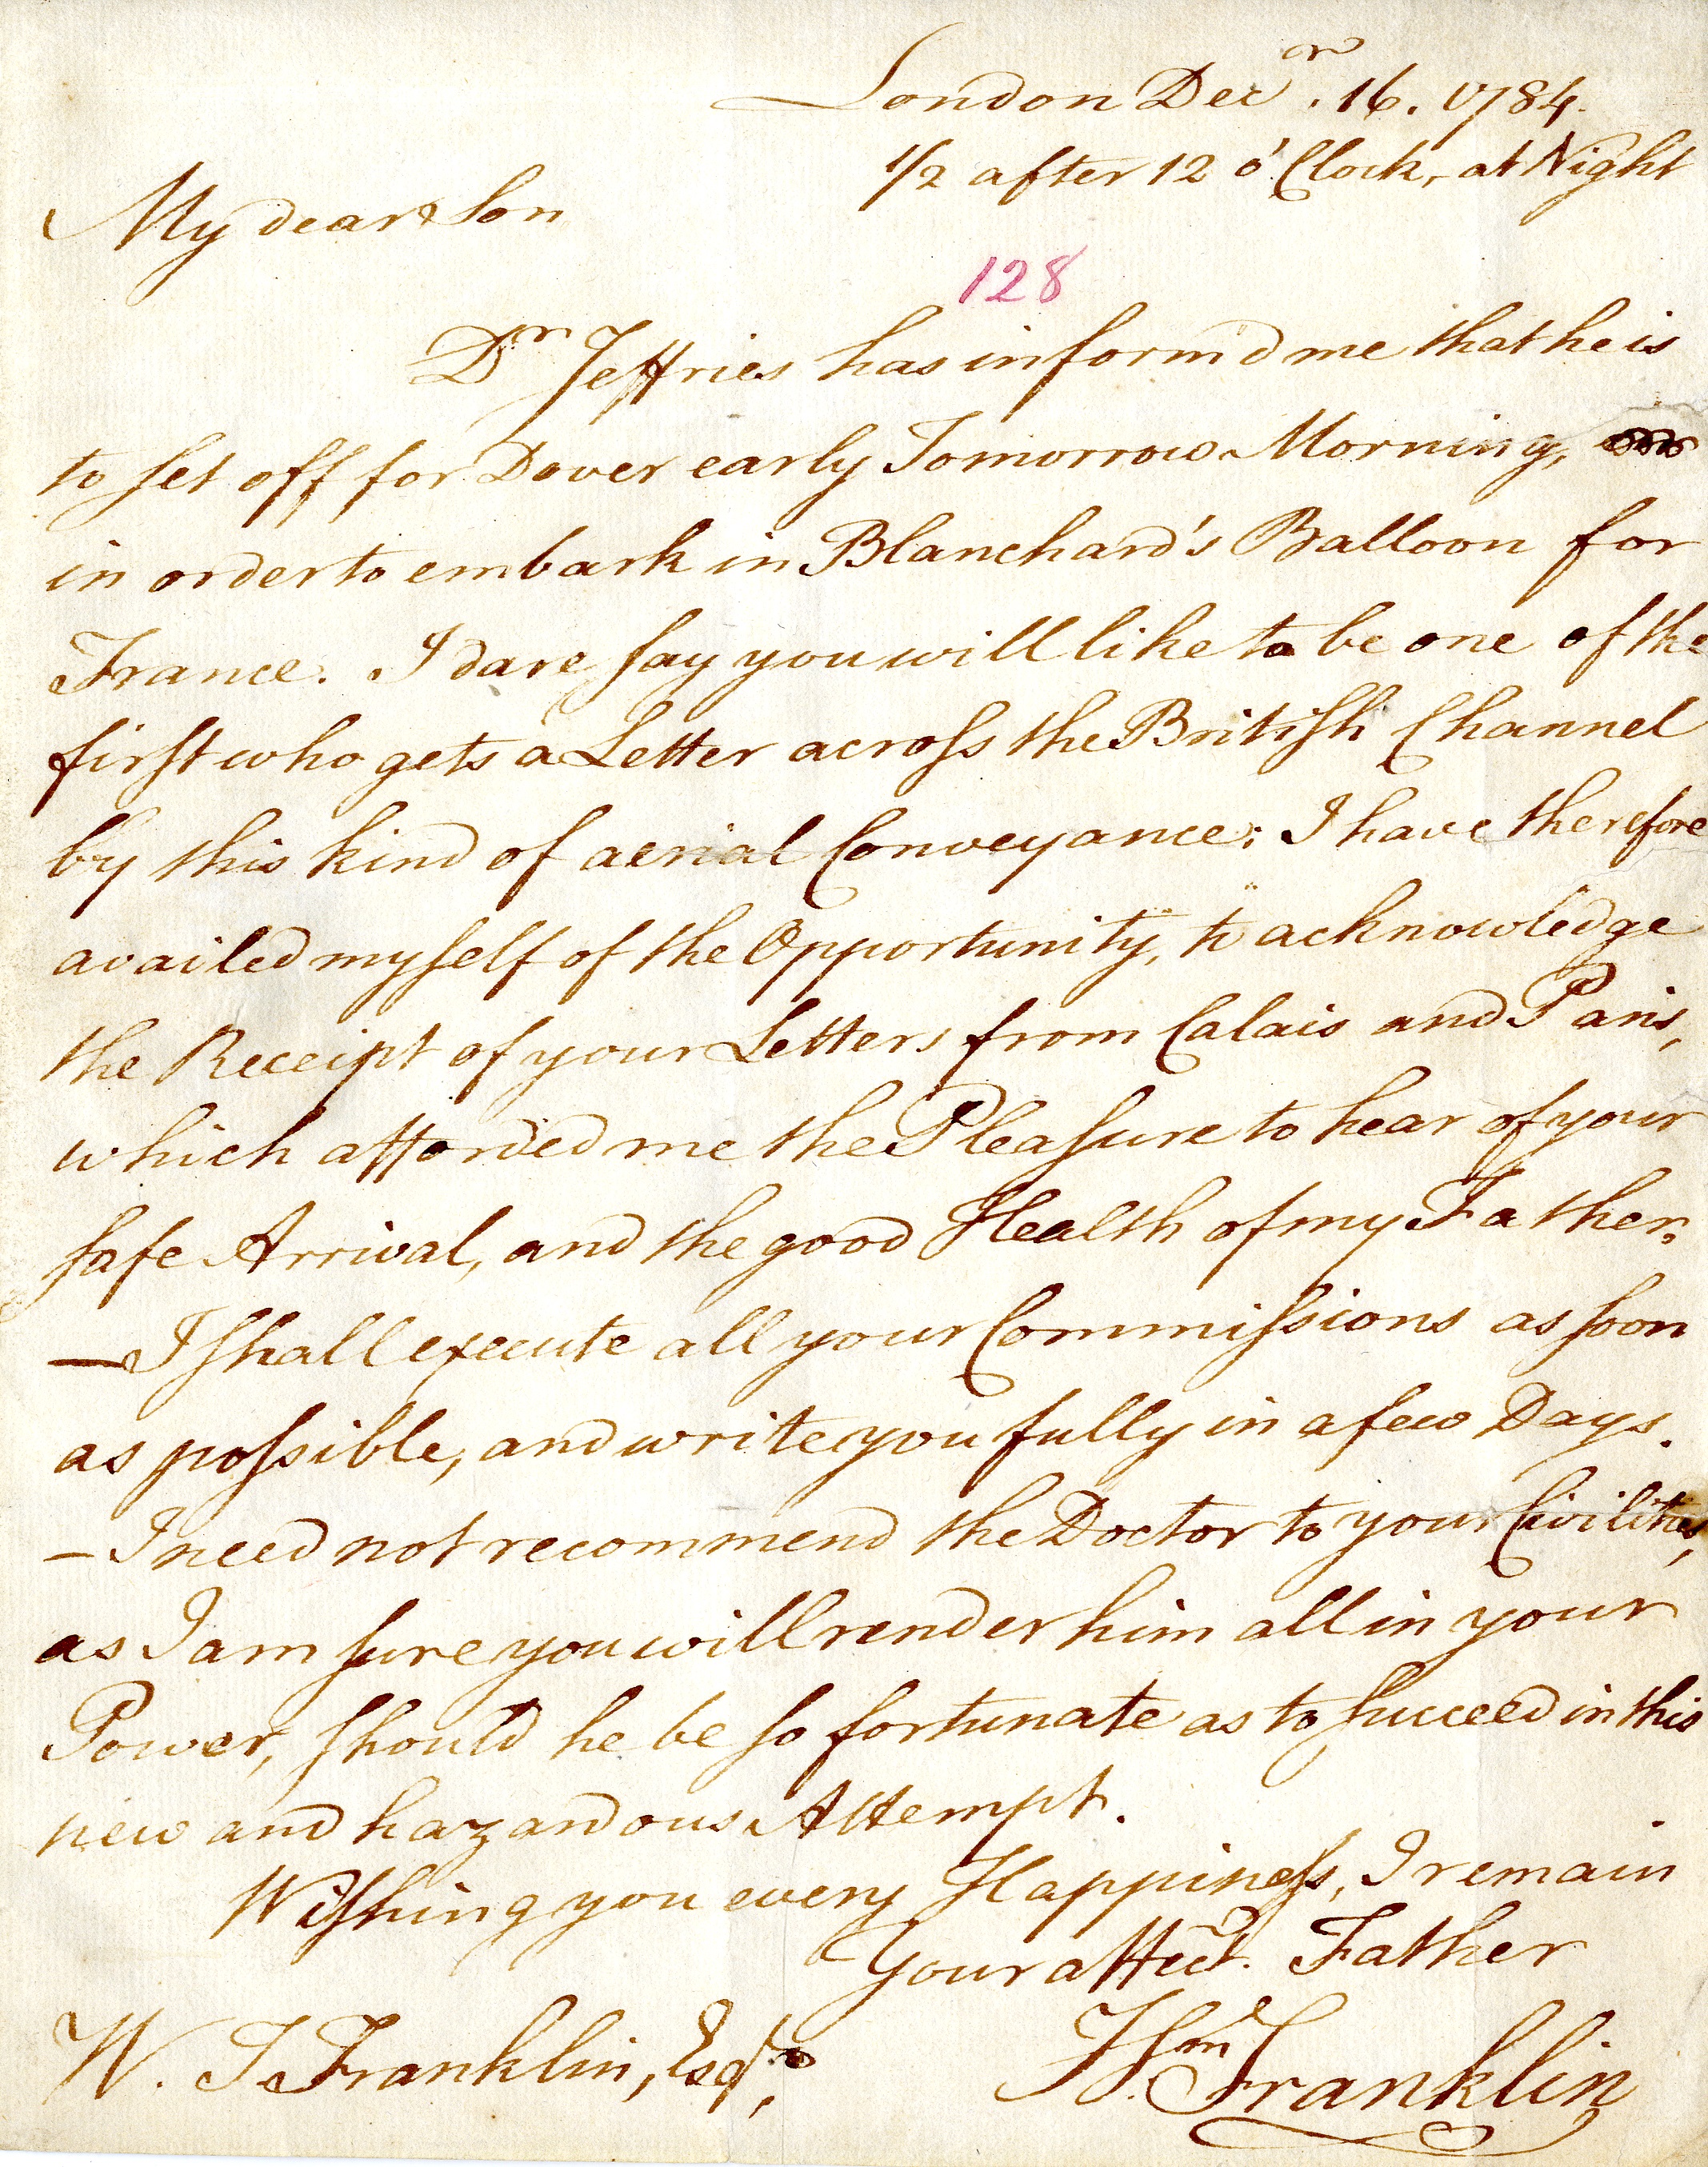 London Decr. 16. 1784.
1/2 after 12 o'Clock, at Night
My dear Son
128
Dr Jeffries has inform'd me that he is
to ſet off for Dover early Tomorrow Morning,
in order to embark in Blanchard's Balloon for
France. I dare ſay you will like to be one of the
firſt who gets a Letter acroſs the Britiſh Channel
by this kind of aerial Conveyance: I have therefore
availed myſelf of the Opportunity, to acknowledge
the Receipt of your Letters from Calais and Paris,
which afforded me the Pleaſure to hear of your
ſafe Arrival, and the good Health of my Father.
— I ſhall execute all your Commiſsions as ſoon
as poſsible, and write you fully in a few Days.
— I need not recommend the Doctor to your Civilities,
as I am ſure you will render him all in your
Power, ſhould he be ſo fortunate as to ſucceed in this
new and hazardous Attempt.
Wiſhing you every Happineſs, I remain
Your affect. Father
W. T. Franklin, Esqr.
Wm. Franklin